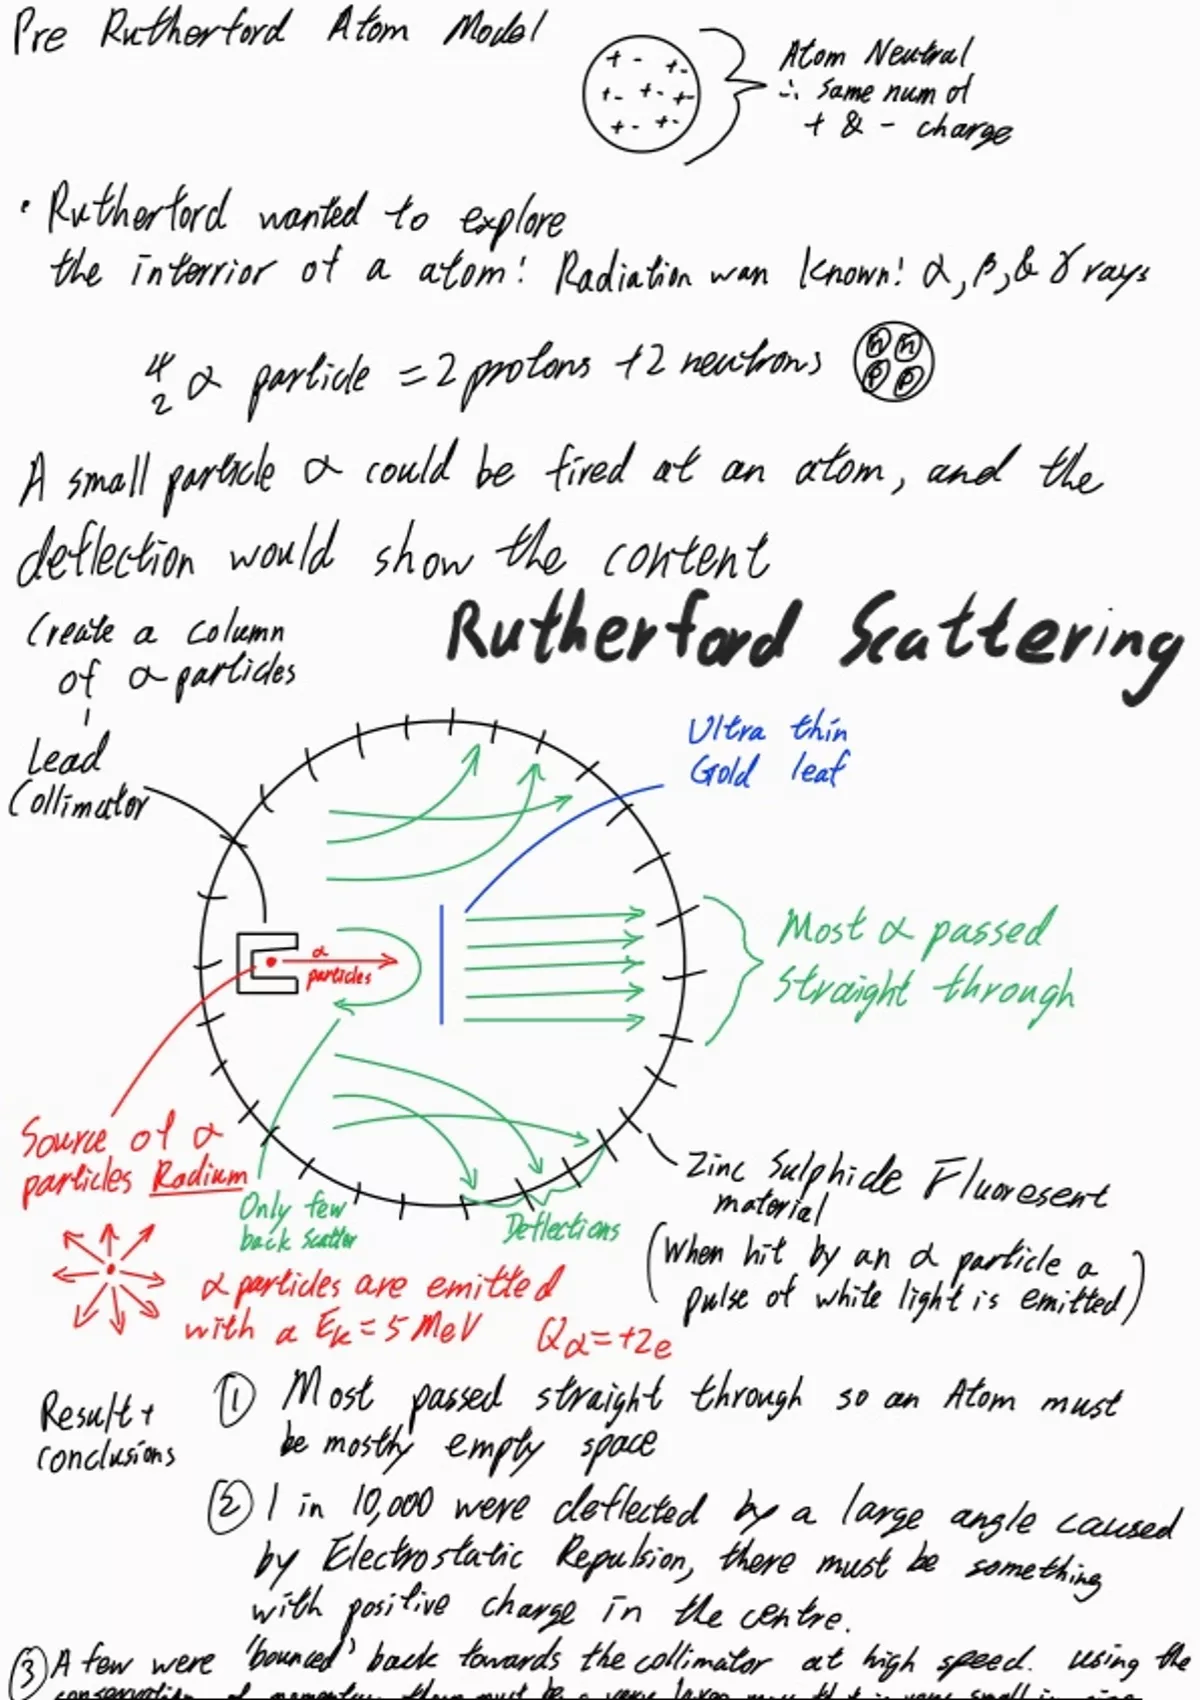 Pre Rutherford Atom Model
+ - + -
+ - + - + -
+ - + -
Atom Neutral
∴ same num of
+ & - charge
• Rutherford wanted to explore
the interrior of a atom! Radiation wan known! α, β, & γ rays
4
2 α particle = 2 protons + 2 neutrons
n n
p p
A small particle α could be fired at an atom, and the
deflection would show the content
Rutherford Scattering
Create a column
of α particles
Lead
Collimator
Ultra thin
Gold leaf
α
particles
Most α passed
straight through
Source of α
particles Radium
Only few
back scatter
Deflections
Zinc Sulphide Fluoresent
material
(When hit by an α particle a
pulse of white light is emitted)
α particles are emitted
with a Ek = 5 MeV Qα = +2e
Result +
conclusions
① Most passed straight through so an Atom must
be mostly empty space
② 1 in 10,000 were deflected by a large angle caused
by Electrostatic Repulsion, there must be something
with positive charge in the centre.
③ A few were 'bounced' back towards the collimator at high speed. using the
conservation of momentum there must be a very large